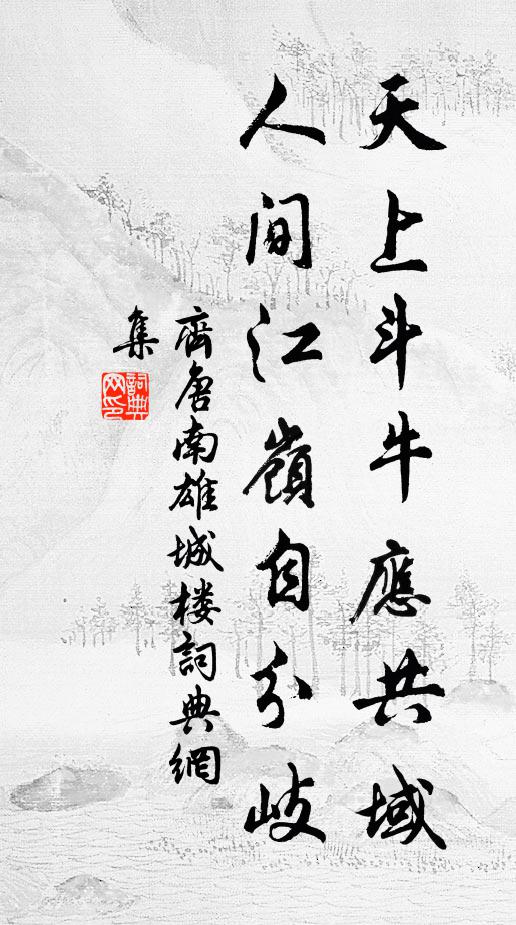 天上斗牛應共域
人間江嶺自分歧
齊唐南雄城楼詞典網
集
詞典
网印